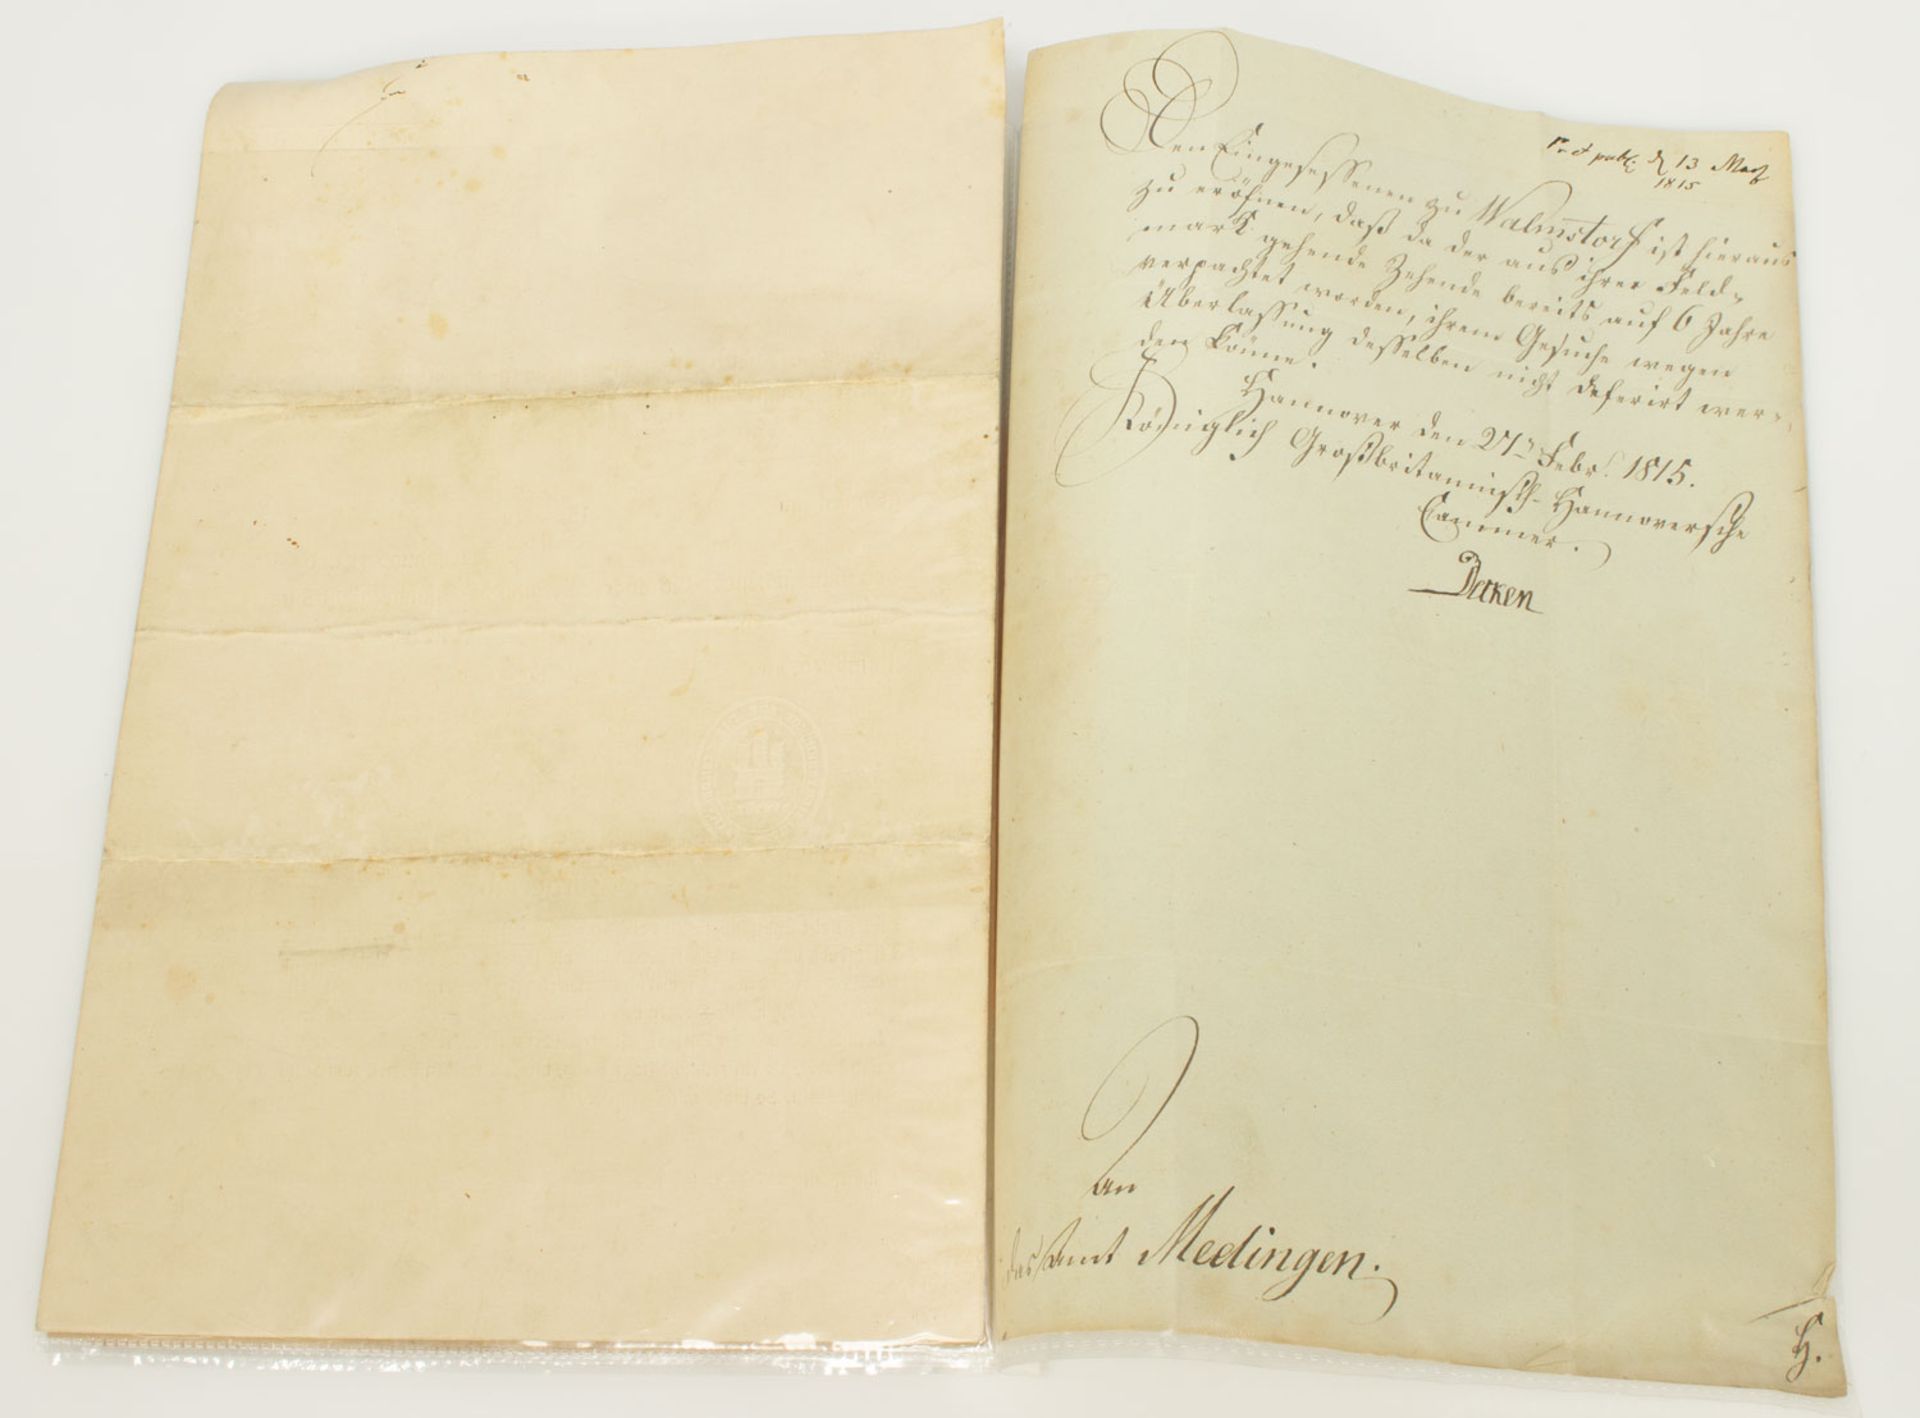 publ: d 13 Marz
1815
Den Eingesessenen zu Walmstorf ist hieraus
zu eröfnen, daß da der aus ihrer Feld-
mark gehende Zehende bereits auf 6 Jahre
verpachtet worden, ihrem Gesuche wegen
Überlassung desselben nicht deferirt wer-
den könne.
Hannover den 27n Febr. 1815.
Königlich Großbritannisch-Hannoversche
Cammer.
Decken
An
das Amt Medingen.
H.